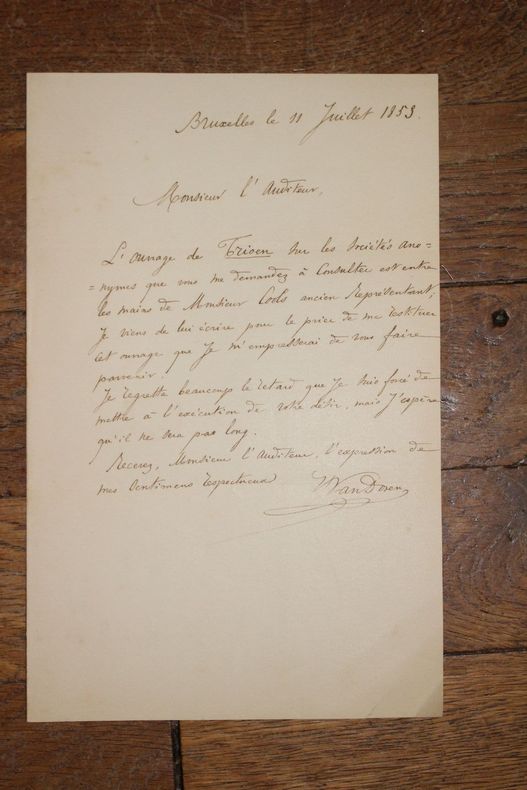 Bruxelles le 11 Juillet 1853.
Monsieur l'Auditeur,
L'ouvrage de Trioen sur les Sociétés ano=
=nymes que vous me demandez à Consulter est entre
les mains de Monsieur Cools ancien Représentant,
Je viens de lui écrire pour le prier de me restituer
cet ouvrage que Je m'empresserai de vous faire
parvenir.
Je regrette beaucoup le retard que Je suis forcé de
mettre à l'exécution de votre désir, mais J'espère
qu'il ne sera pas long.
Recevez, Monsieur l'Auditeur, l'expression de
mes Sentimens respectueux
VanDoren